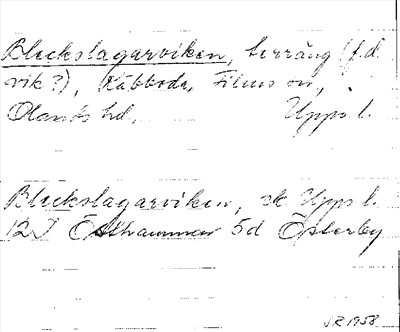 Bleckslagarviken, terräng (f.d.
vik?), Kåbboda, Films sn,
Olands hd, Upps. l.
Bleckslagarviken, ek Upps l.
12I Östhammar 5d Österby
JR 1958